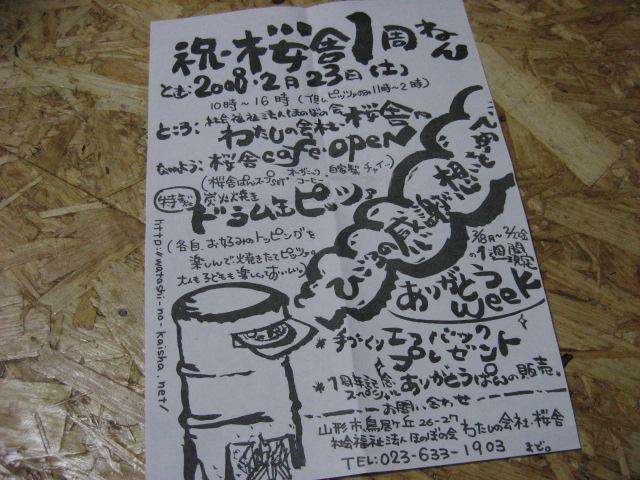 祝・桜舎1周ねん
とき: 2008・2月23日(土)
10時～16時(但し、ピッツァのみ11時～2時)
ところ: 社会福祉法人ほのぼの会
わたしの会社、桜舎
ないよう: 桜舎cafe・open
(桜舎ぱん、スープset オーガニックコーヒー 自家製チャイ)
特製 炭火焼き
ドラム缶ピッツァ
(各自、お好みのトッピングを
楽しんで焼きたてピッツァ。
大人も子どもも楽しくおいしい)
http://watashi-no-kaisha.net/
ありがとう
week
の1週間限定
*手づくりエコバック
プレゼント
*1周年記念
スペシャル ありがとうぱんの販売。
お問い合わせ
山形市鳥居ヶ丘26-27
社会福祉法人ほのぼの会 わたしの会社・桜舎
TEL:023-633-1903 まで。